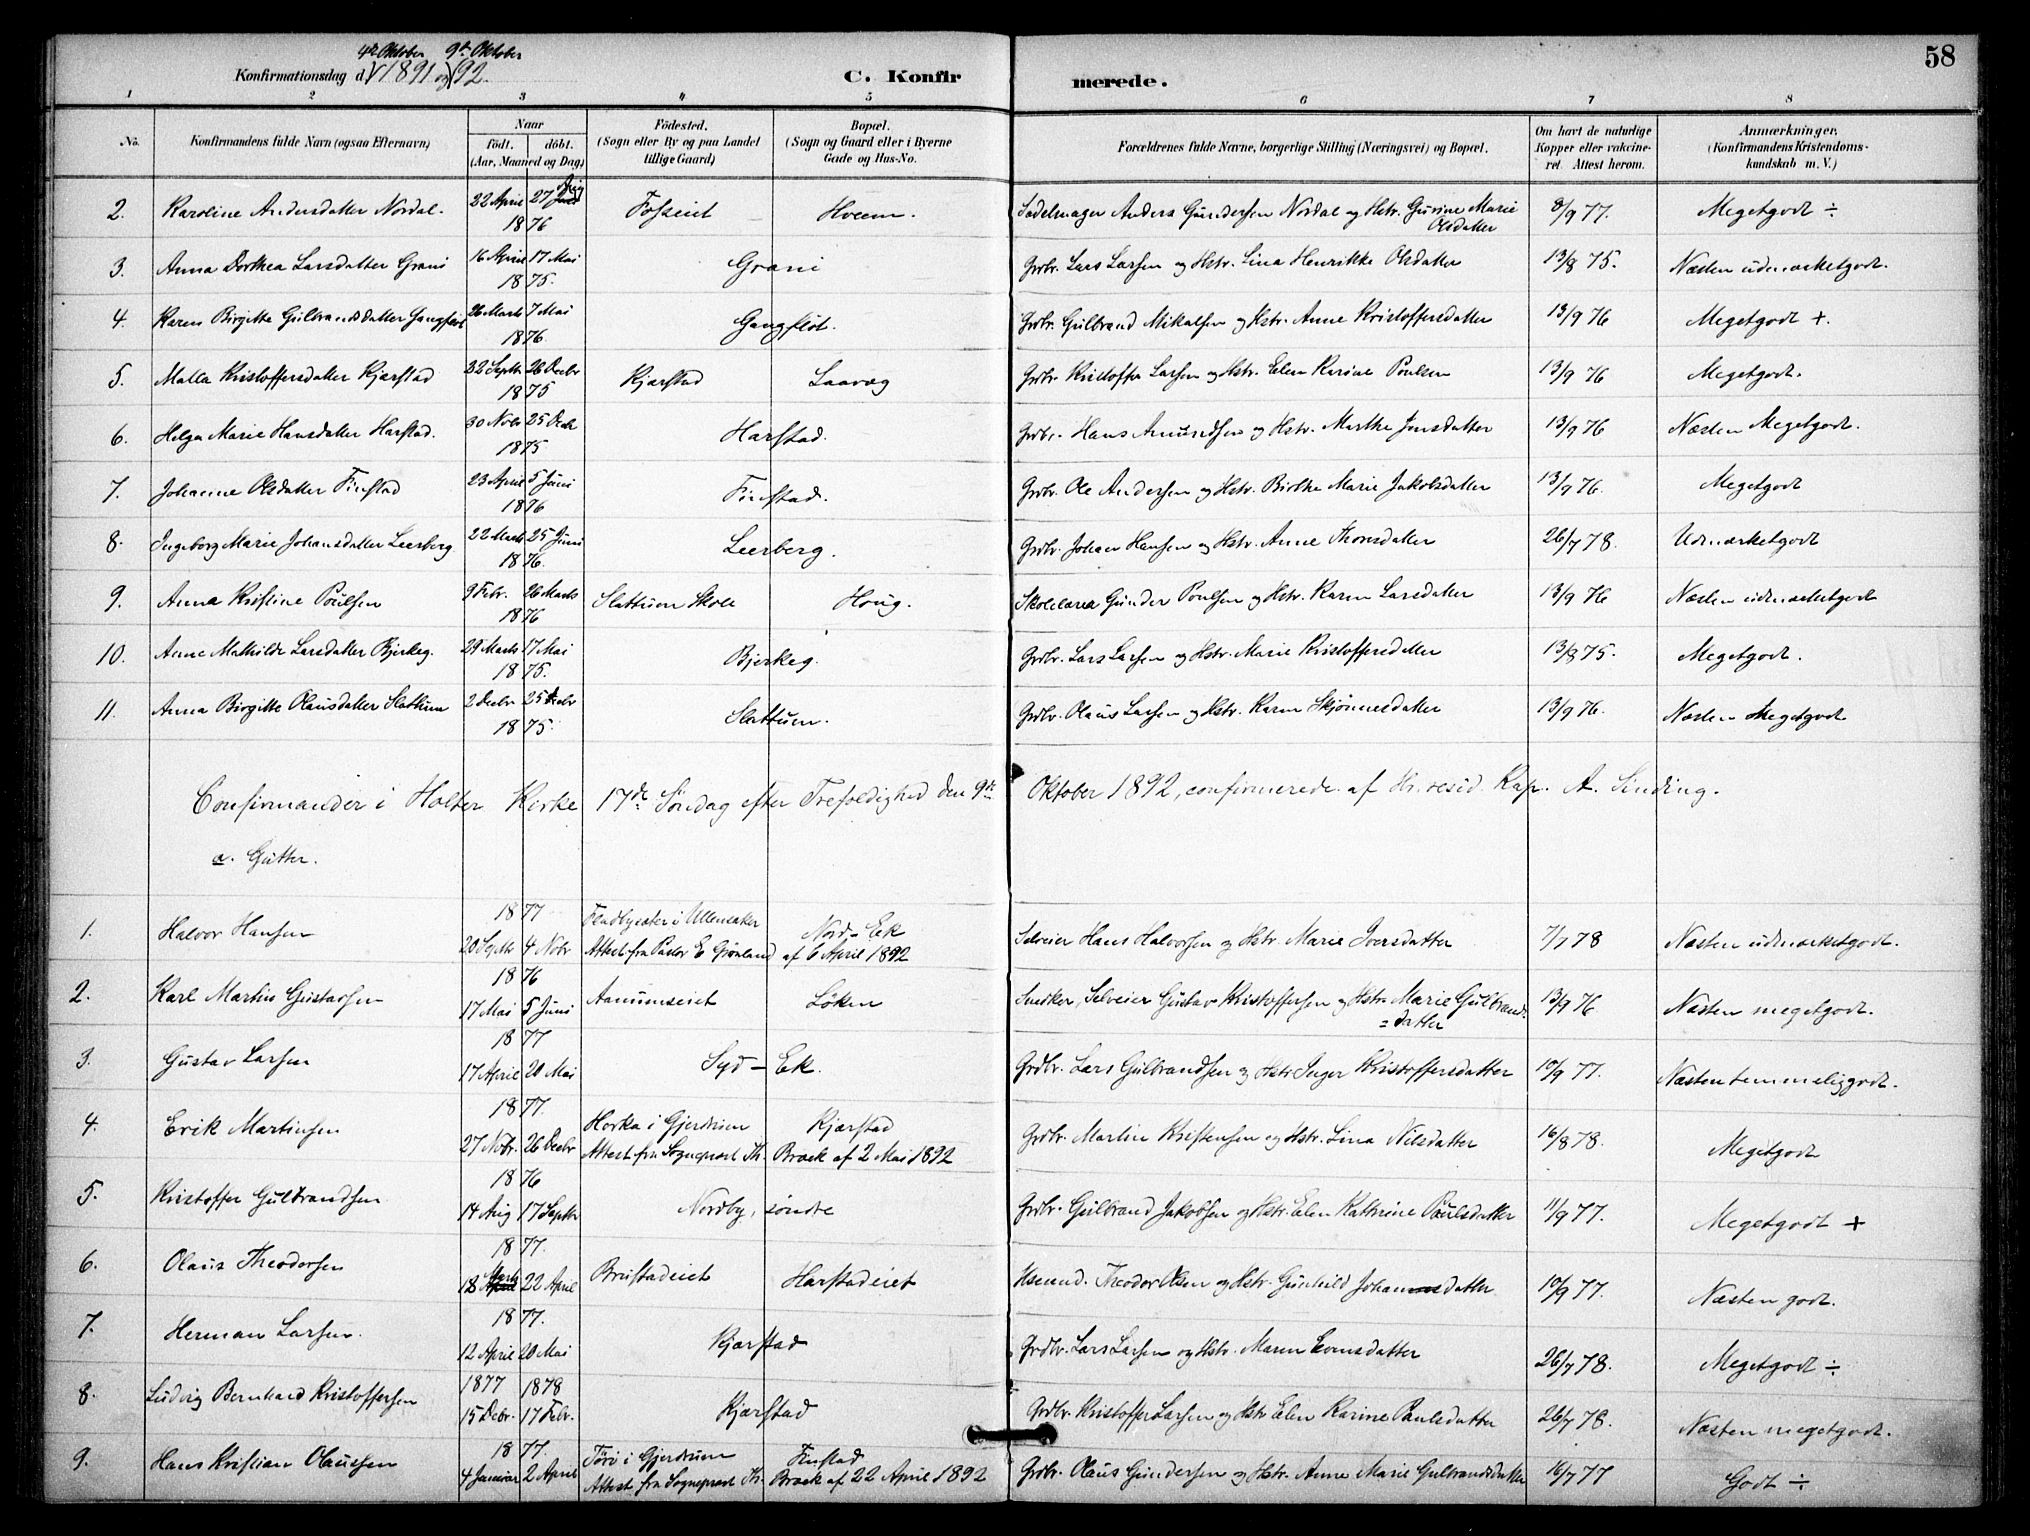 58
4de Oktober 9de Oktober
Konfirmationsdag d. 1891 og 92.
C. Konfirmerede.
1 2 3 4 5 6 7 8
No. Konfirmandens fulde Navn (ogsaa Efternavn) Naar født. døbt. (Aar, Maaned og Dag) Födested. (Sogn eller By og paa Landet tillige Gaard) Bopæl. (Sogn og Gaard eller i Byerne Gade og Hus-No. Forældrenes fulde Navne, borgerlige Stilling (Næringsvei) og Bopæl. Om havt de naturlige Kopper eller vakcineret. Attest herom. Anmærkninger. (Konfirmandens Kristendomskundskab m. V.)
2. Karoline Andersdatter Nordal. 22 April 27 1876 Fosseiet Hveem. Sadelmager Anders Gundersen Nordal og Hstr. Gurine Marie Olsdatter 8/9 77. Megetgodt ÷
3. Anna Dorthea Larsdatter Grani 16 April 17 Mai 1875. Grani Grdbr. Lars Larsen og Hstr. Lina Henrikke Olsdatter 13/8 75. Næsten udmærketgodt.
4. Karen Birgitte Gulbrandsdatter Gangfløt 26 Marts 7 Mai 1876. Gangfløt. Grdbr. Gulbrand Mikalsen og Hstr. Anne Kristoffersdatter 13/9 76 Megetgodt +.
5. Malla Kristoffersdatter Kjærstad 22 Septbr 26 Decbr 1875 Kjærstad Laavæg Grdbr. Kristoffer Larsen og Hstr. Elen Karine Poulsen 13/9 76 Megetgodt.
6. Helga Marie Hansdatter Harstad. 30 Novbr 25 Decbr 1875 Harstad. Grdbr. Hans Amundsen og Hstr. Marthe Jonsdatter 13/9 76 Næsten Megetgodt.
7. Johanne Olsdatter Finstad 23 April 5 Juni 1876 Finstad. Grdbr. Ole Andersen og Hstr. Birthe Marie Jakobsdatter 13/9 76. Megetgodt
8. Ingeborg Marie Johansdatter Leerberg 22 Marts 25 Juni 1876. Leerberg. Grdbr. Johan Hansen og Hstr. Anne Thorsdatter 26/7 78. Udmærketgodt
9. Anna Kristine Poulsen 9 Febr. 26 Marts 1876 Slattum Skole Houg. Skolelærer Gunder Poulsen og Hstr. Karen Larsdatter 13/9 76 Næsten udmærketgodt
10. Anne Mathilde Larsdatter Bjerkeg. 29 Marts 17 Mai 1875. Bjerkeg. Grdbr. Lars Larsen og Hstr. Marie Kristoffersdatter 13/8 75. Megetgodt.
11. Anna Birgitte Olausdatter Slattum 2 Decbr 25 Decbr 1875. Slattum. Grdbr. Olaus Larsen og Hstr. Karen Skjønnesdatter 13/9 76. Næsten Megetgodt
Confirmander i Holter Kirke 17de Søndag efter Trefoldighed den 9de Oktober 1892, confirmerede af Hr. resid. Kap. A. Sinding.
a. Gutter.
1. Halvor Hansen 1877 20 Septbr 4 Nobr Fladbysæter i Ullensaker Nord-Ek Attest fra Pastor E Grønland af 6 April 1892 Selveier Hans Halvorsen og Hstr. Marie Iversdatter 7/7 78 Næsten udmærketgodt.
2. Karl Martin Gustavsen 1876 17 Mai 5 Juni Aamumseiet Løken Snedker, Selveier Gustav Kristoffersen og Hstr. Marie Gulbrands=datter 13/9 76 Næsten megetgodt.
3. Gustav Larsen 1877 17 April 20 Mai Syd-Ek. Grdbr. Lars Gulbrandsen og Hstr Inger Kristoffersdatter 10/9 77. Næsten temmeliggodt.
4. Erik Martinsen 1877. 27 Nobr. 26 Decbr Horka i Gjerdrum Kjærstad Attest fra Sognepræst Th. Broch af 2 Mai 1892 Grdbr. Martin Kristensen og Hstr. Lina Nilsdatter 16/8 78. Megetgodt
5. Kristoffer Gulbrandsen 1876 14 Aug 17 Septbr Nordby, søndre Grdbr. Gulbrand Jakobsen og Hstr. Elen Kathrine Paulsdatter 11/9 77. Megetgodt +
6. Olaus Theodorsen 1877. 18 Marts 22 April Brustadeiet Harstadeiet Husmd. Theodor Olsen og Hstr. Gunhild Johannesdatter 10/9 77. Næsten godt.
7. Herman Larsen. 1877. 12 April 20 Mai Kjærstad Grdbr. Lars Larsen og Hstr. Maren Evensdatter 26/7 78. Megetgodt ÷
8. Ludvig Bernhard Kristoffersen 1877 1878 15 Debr. 17 Febr. Kjærstad Grdbr. Kristoffer Larsen og Hstr Elen Karine Paulsdatter 26/7 78. Næsten megetgodt.
9. Hans Kristian Olaussen 1877. 4 Januar 2 April Tøri i Gjerdrum Finstad Attest fra Sognepræst Th. Broch af 22 April 1892 Grdbr. Olaus Gundersen og Hstr. Anne Marie Gulbrandsdatter 16/7 77 Godt ÷